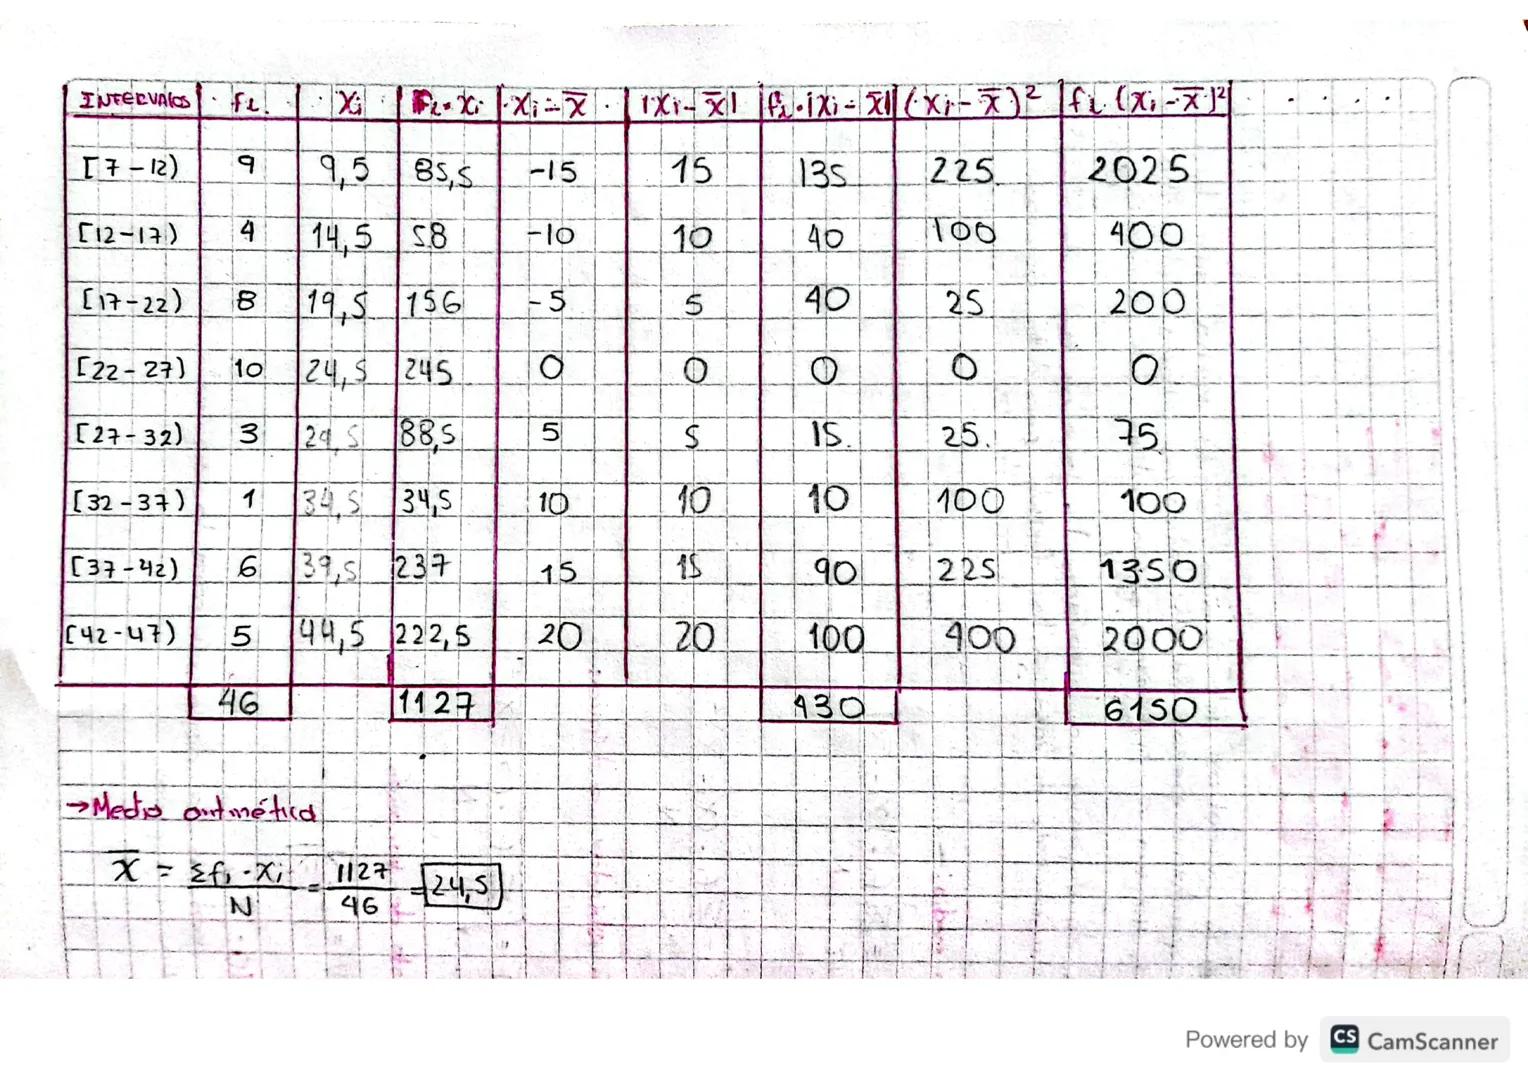 INTERVALOS fi. Xi fi·Xi Xi-X̅ |Xi-X̅| fi·|Xi-X̅| (Xi-X̅)² fi·(Xi-X̅)²
[7-12) 9 9,5 85,5 -15 15 135 225 2025
[12-17) 4 14,5 58 -10 10 40 100 400
[17-22) 8 19,5 156 -5 5 40 25 200
[22-27) 10 24,5 245 0 0 0 0 0
[27-32) 3 29,5 88,5 5 5 15. 25. 75
[32-37) 1 34,5 34,5 10 10 10 100 100
[37-42) 6 39,5 237 15 15 90 225 1350
[42-47) 5 44,5 222,5 20 20 100 400 2000
46 1127 430 6150
→Media aritmética
X̅ = Σfi·Xi / N = 1127 / 46 = 24,5
Powered by CS CamScanner